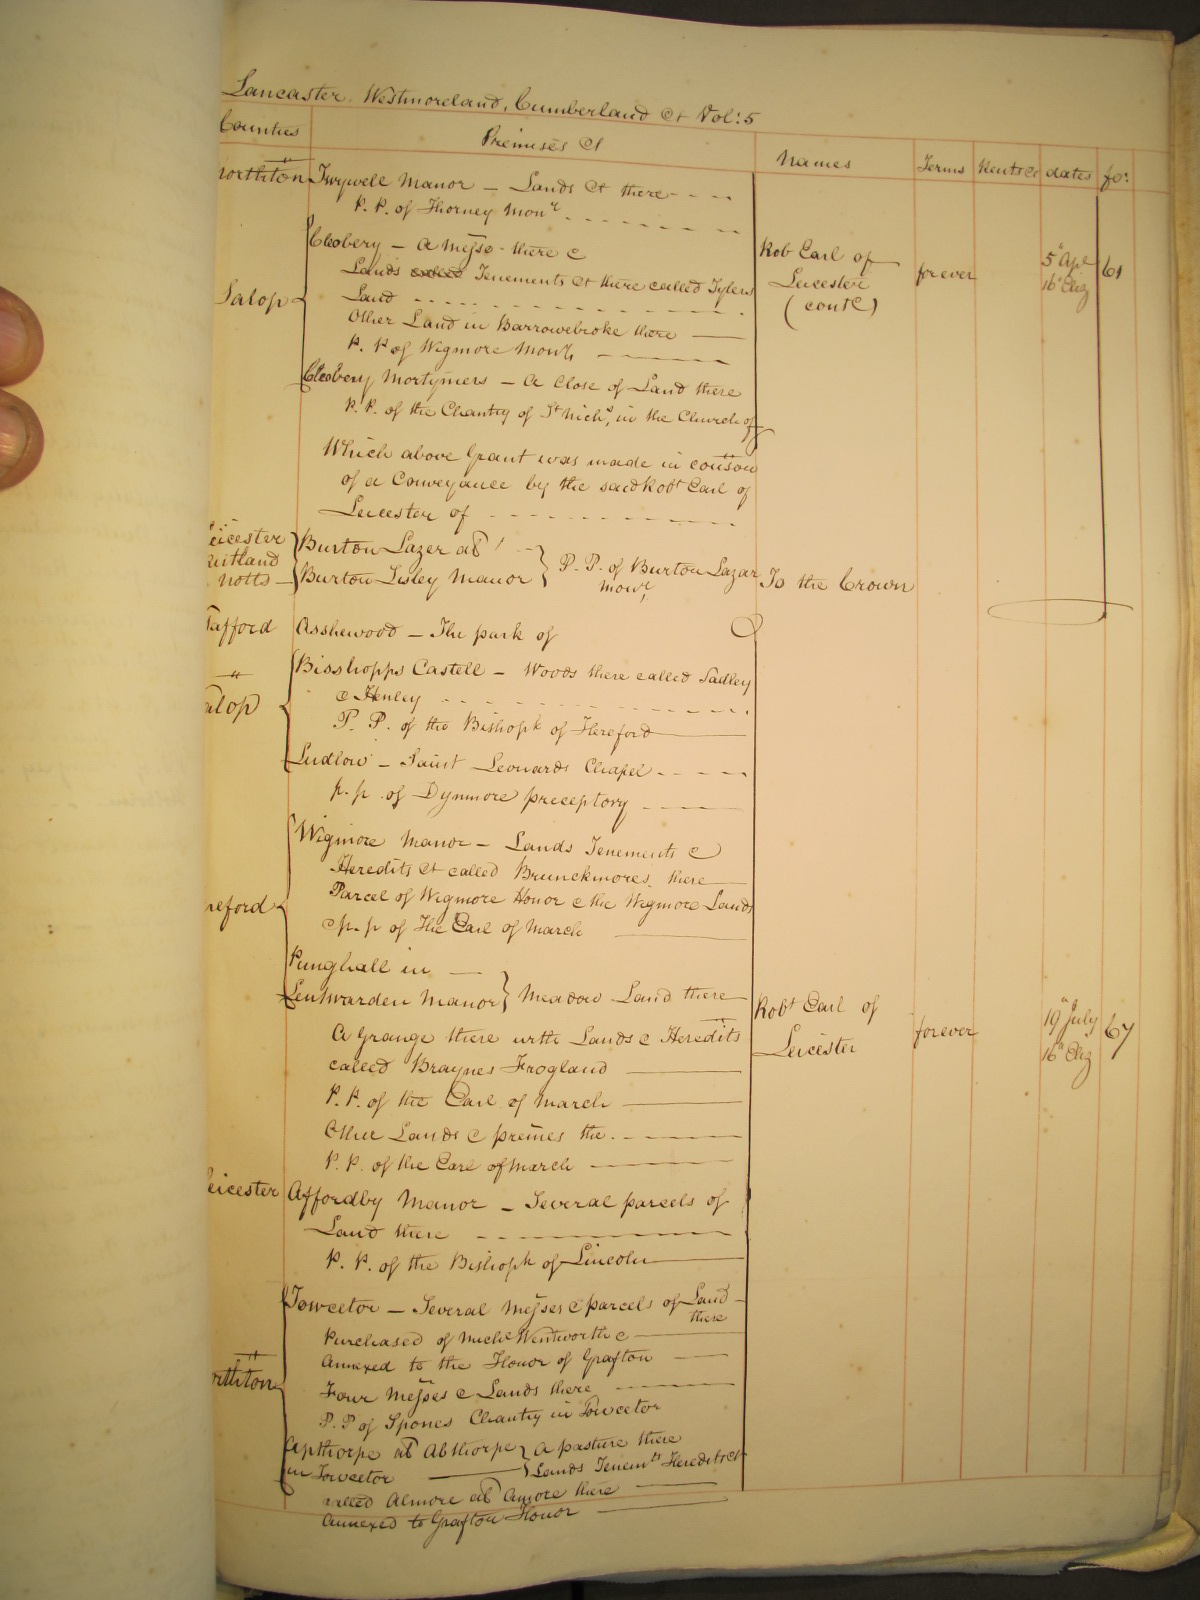 Lancaster, Westmoreland, Cumberland &c Vol: 5
Counties Premises &c Names Terms Rents &c dates fo:
Northton Twywell Manor — Lands &c there
P. P. of Thorney Monr
Salop Cleobery — A Messe there &
Lands called Tenements &c there called Tylers
Land
Other Land in Barrowebroke there
P. P. of Wigmore Mony
Rob Earl of Leicester (contd) forever 5 Apl 16 Eliz 61
Cleobery Mortymers — A Close of Land there
P. P. of the Chantry of St Nichs, in the Church of
Which above Grant was made in conson
of a Conveyance by the said Robt Earl of
Leicester of
Leicester Burton Lazer als
Rutland
Notts Burton Lisley Manor P. P. of Burton Lazar Monr, To the Crown
Stafford Asshewood — The park of
Salop Bisshopps Castell — Woods there called Sadley
& Henley
P. P. of the Bishopk of Hereford
Ludlow — Saint Leonards Chapel
p. p. of Dynmore preceptory
Hereford Wigmore Manor — Lands Tenements &
Heredits &c called Brunckmores there
Parcel of Wigmore Honor & the Wigmore Lands
& p. p of The Earl of March
Punghall in
Lentwarden Manor Meadow Land there
Robt Earl of Leicester forever 19 July 16 Eliz 67
A Grange there with Lands & Heredits
called Braynes Frogland
P. P. of the Earl of March
Other Lands & premes the.
P. P. of the Earl of March
Leicester Affordby Manor — Several parcels of
Land there
P. P. of the Bishopk of Lincoln
Northton Towcetor — Several Messes & parcels of Land there
Purchased of Michl Wentworth &
Annexed to the Honor of Grafton
Four Messes & Lands there
P. P of Spones Chantry in Towcetor
Apthorpe als Abthorpe A pasture there
in Towcetor Lands Tenemts Heredits &c
called Almore als Amore there
Annexed to Grafton Honor